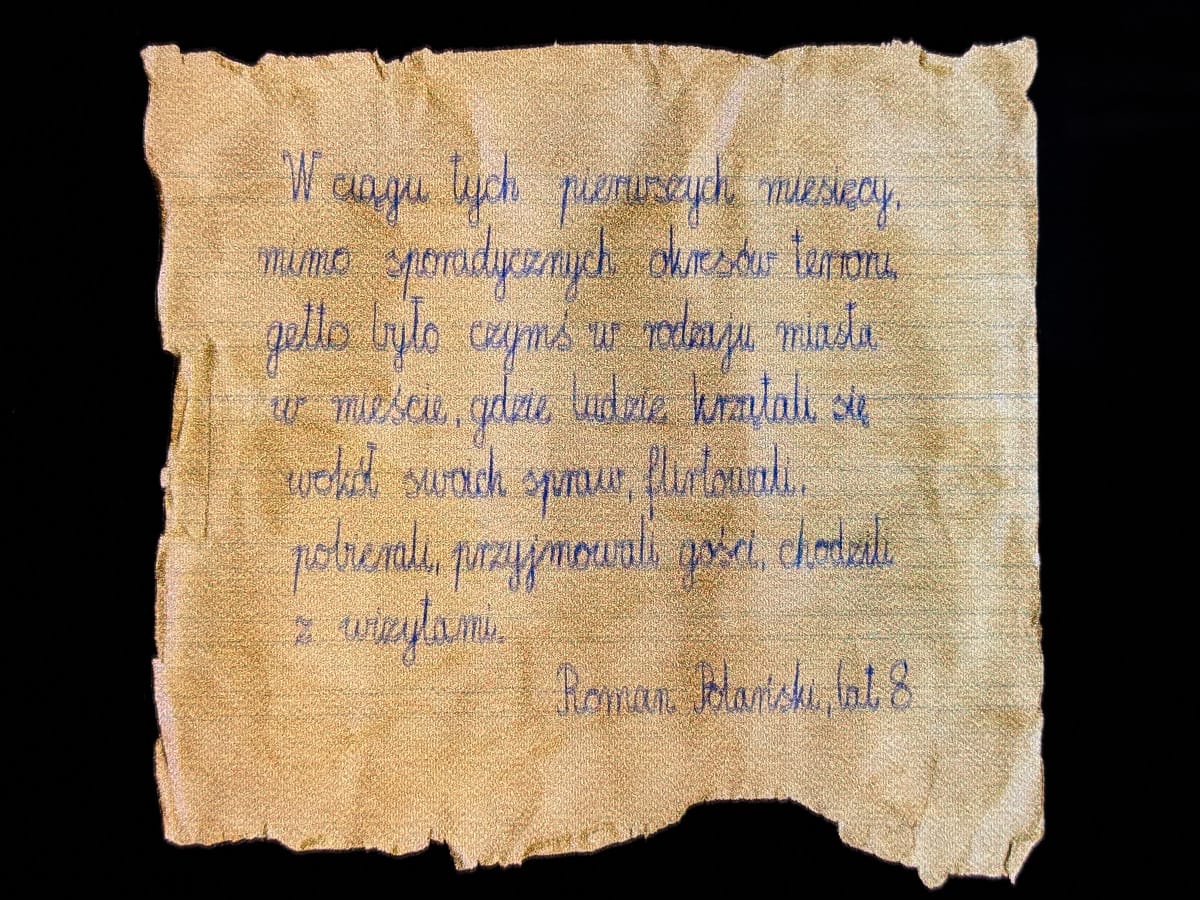 W ciągu tych pierwszych miesięcy,
mimo sporadycznych okresów terroru,
getto było czymś w rodzaju miasta
w mieście, gdzie ludzie krzątali się
wokół swoich spraw, flirtowali,
pobierali, przyjmowali gości, chodzili
z wizytami.
Roman Polański, lat 8